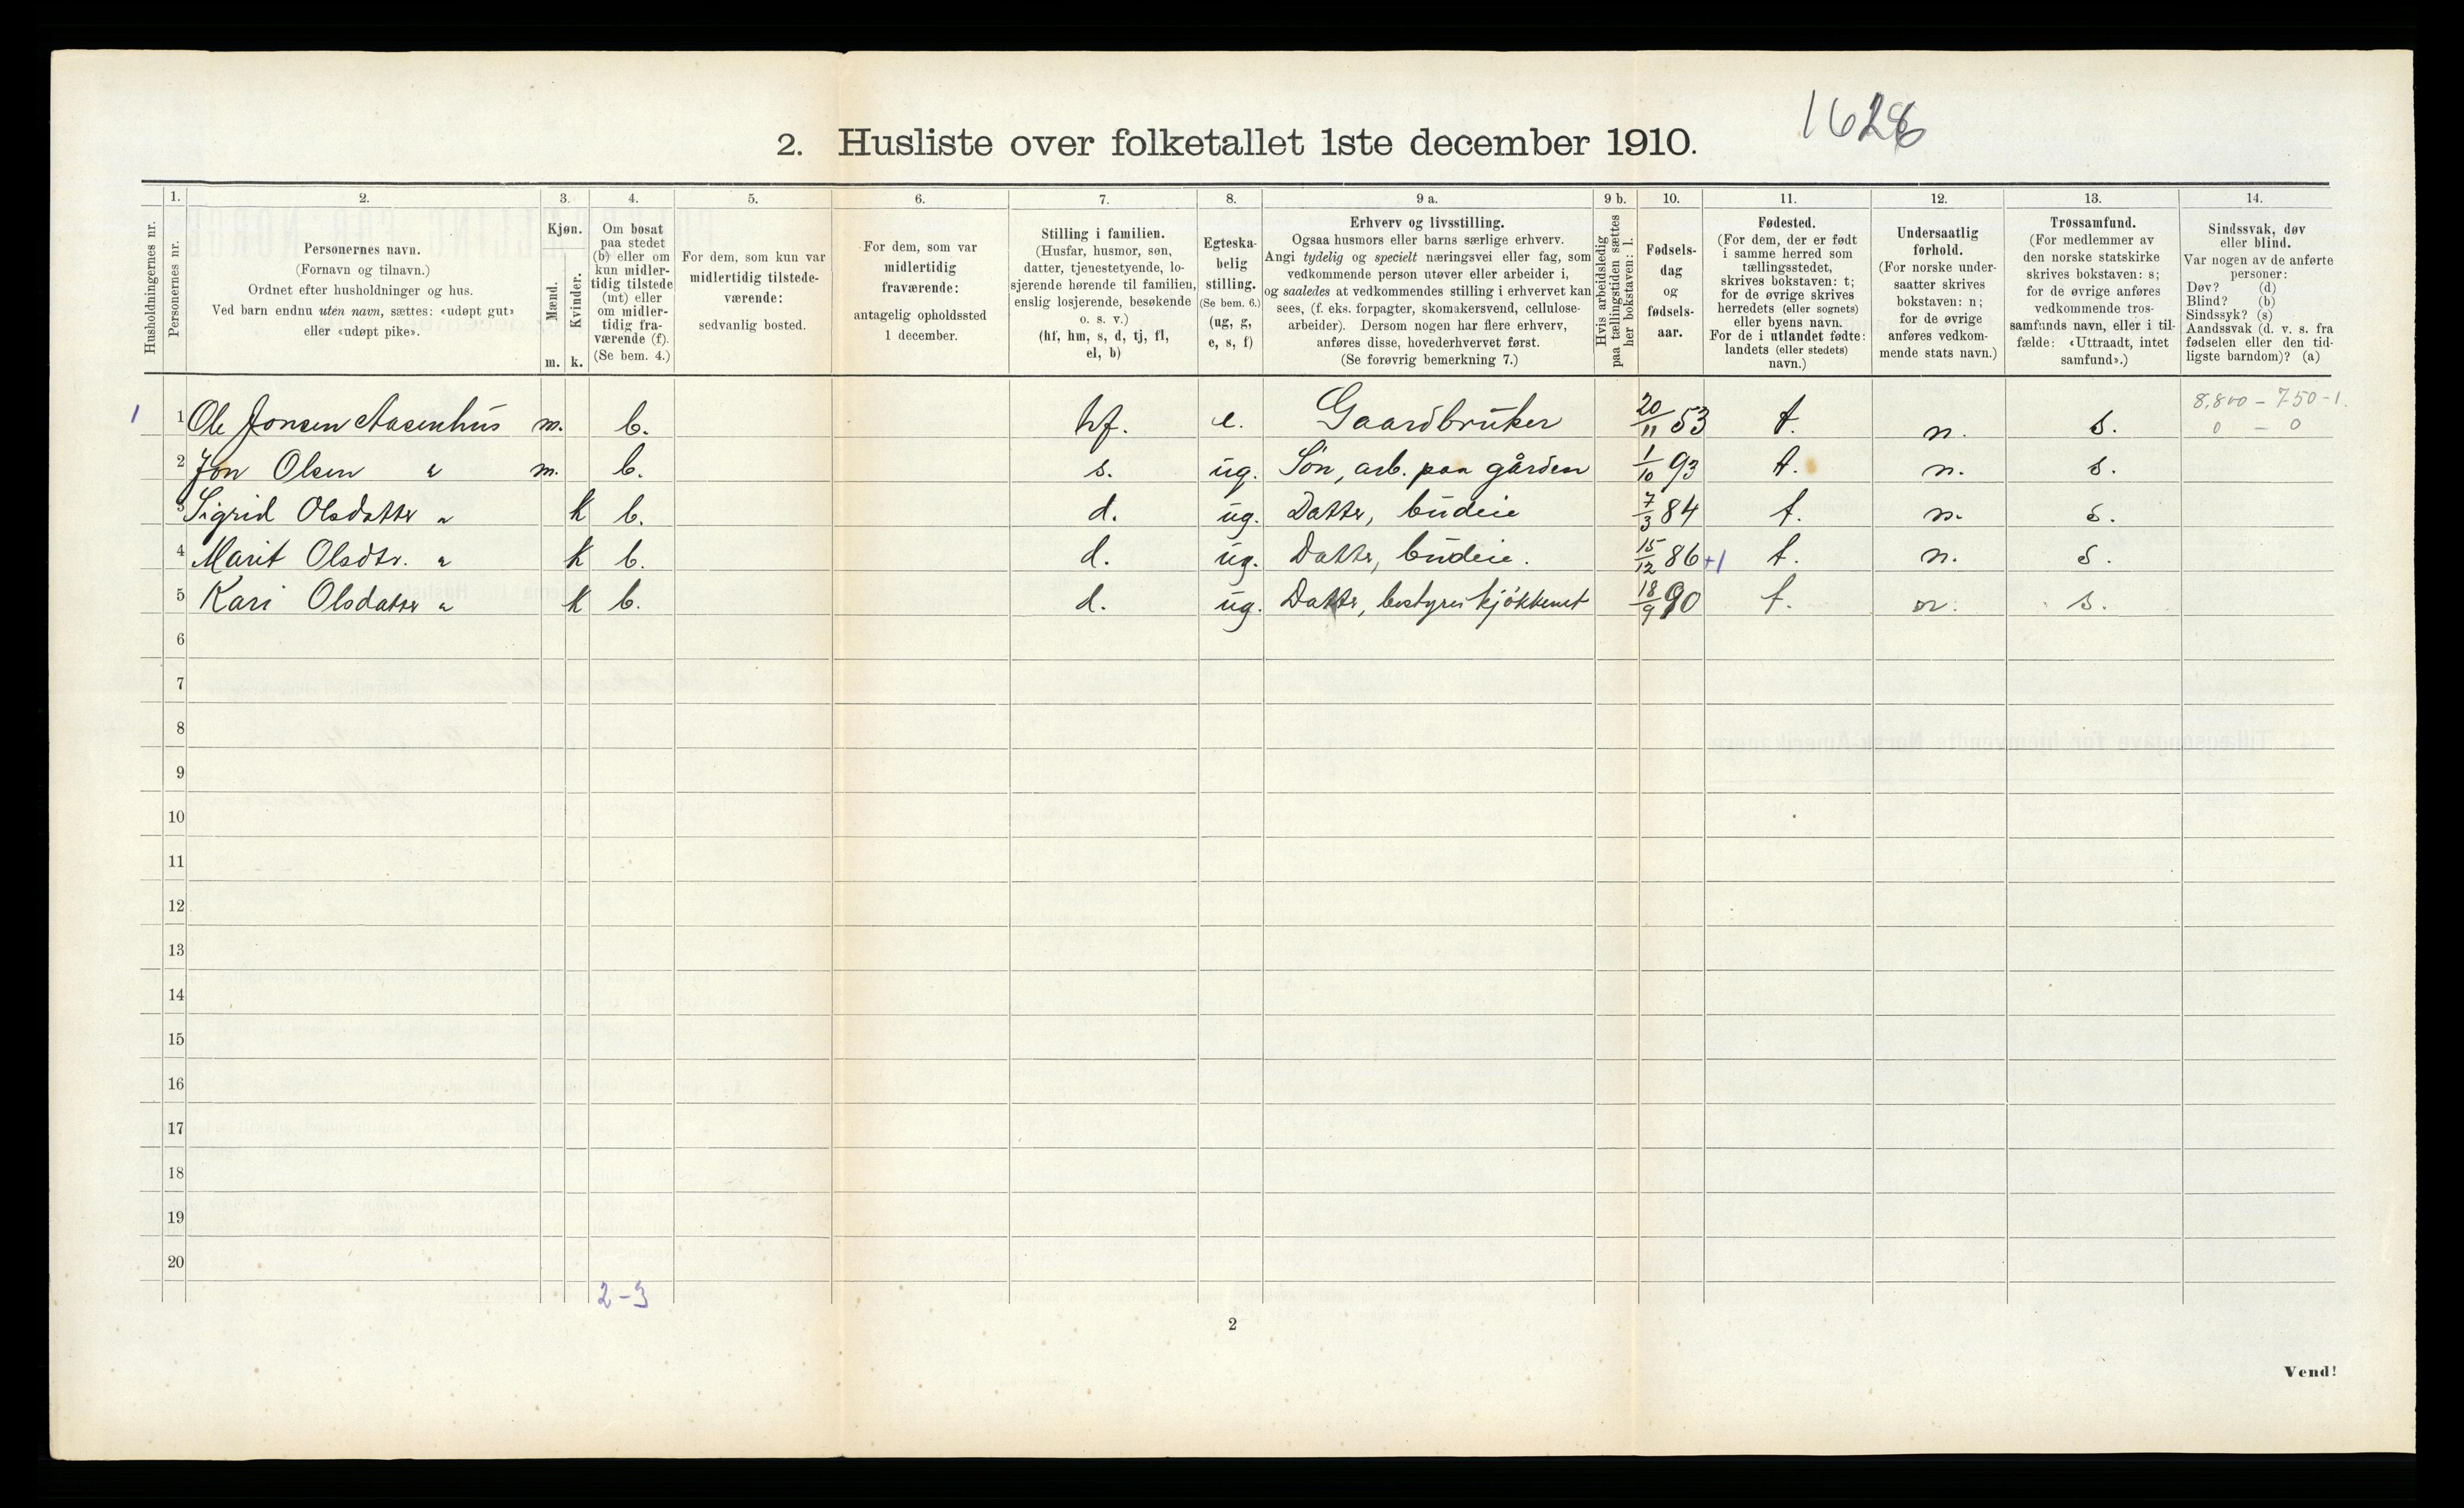 1626
2. Husliste over folketallet 1ste december 1910.
Husholdningernes nr.
1. Personernes nr.
2. Personernes navn.
(Fornavn og tilnavn.)
Ordnet efter husholdninger og hus.
Ved barn endnu uten navn, sættes: «udøpt gut»
eller «udøpt pike».
3. Kjøn.
Mænd. m.
Kvinder. k.
4. Om bosat
paa stedet
(b) eller om
kun midler-
tidig tilstede
(mt) eller
om midler-
tidig fra-
værende (f).
(Se bem. 4.)
5. For dem, som kun var
midlertidig tilstede-
værende:
sedvanlig bosted.
6. For dem, som var
midlertidig
fraværende:
antagelig opholdssted
1 december.
7. Stilling i familien.
(Husfar, husmor, søn,
datter, tjenestetyende, lo-
sjerende hørende til familien,
enslig losjerende, besøkende
o. s. v.)
(hf, hm, s, d, tj, fl,
el, b)
8. Egteska-
belig
stilling.
(Se bem. 6.)
(ug, g,
e, s, f)
9 a. Erhverv og livsstilling.
Ogsaa husmors eller barns særlige erhverv.
Angi tydelig og specielt næringsvei eller fag, som
vedkommende person utøver eller arbeider i,
og saaledes at vedkommendes stilling i erhvervet kan
sees, (f. eks. forpagter, skomakersvend, cellulose-
arbeider). Dersom nogen har flere erhverv,
anføres disse, hovederhvervet først.
(Se forøvrig bemerkning 7.)
9 b. Hvis arbeidsledig
paa tællingstiden sættes
her bokstaven: l.
10. Fødsels-
dag
og
fødsels-
aar.
11. Fødested.
(For dem, der er født
i samme herred som
tællingsstedet,
skrives bokstaven: t;
for de øvrige skrives
herredets (eller sognets)
eller byens navn.
For de i utlandet fødte:
landets (eller stedets)
navn.)
12. Undersaatlig
forhold.
(For norske under-
saatter skrives
bokstaven: n;
for de øvrige
anføres vedkom-
mende stats navn.)
13. Trossamfund.
(For medlemmer av
den norske statskirke
skrives bokstaven: s;
for de øvrige anføres
vedkommende tros-
samfunds navn, eller i til-
fælde: «Uttraadt, intet
samfund».)
14. Sindssvak, døv
eller blind.
Var nogen av de anførte
personer:
Døv? (d)
Blind? (b)
Sindssyk? (s)
Aandssvak (d. v. s. fra
fødselen eller den tid-
ligste barndom)? (a)
8,800 – 750 – 1.
0 – 0
1 1 Ole Jonsen Aasenhus m. b. hf. e. Gaardbruker 20/11 53 t. n. s.
2 Jon Olsen " m. b. s. ug. Søn, arb. paa gården 1/10 93 t. n. s.
3 Sigrid Olsdatter " k b. d. ug. Datter, budeie 7/3 84 t. n. s.
4 Marit Olsdtr. " k b. d. ug. Datter, budeie. 15/12 86 +1 t. n. s.
5 Kari Olsdatter " k b. d. ug. Datter, bestyrer kjökkenet 18/9 90 t. n. s.
6
7
8
9
10
11
12
13
14
15
16
17
18
19
20
2–3
2
Vend!